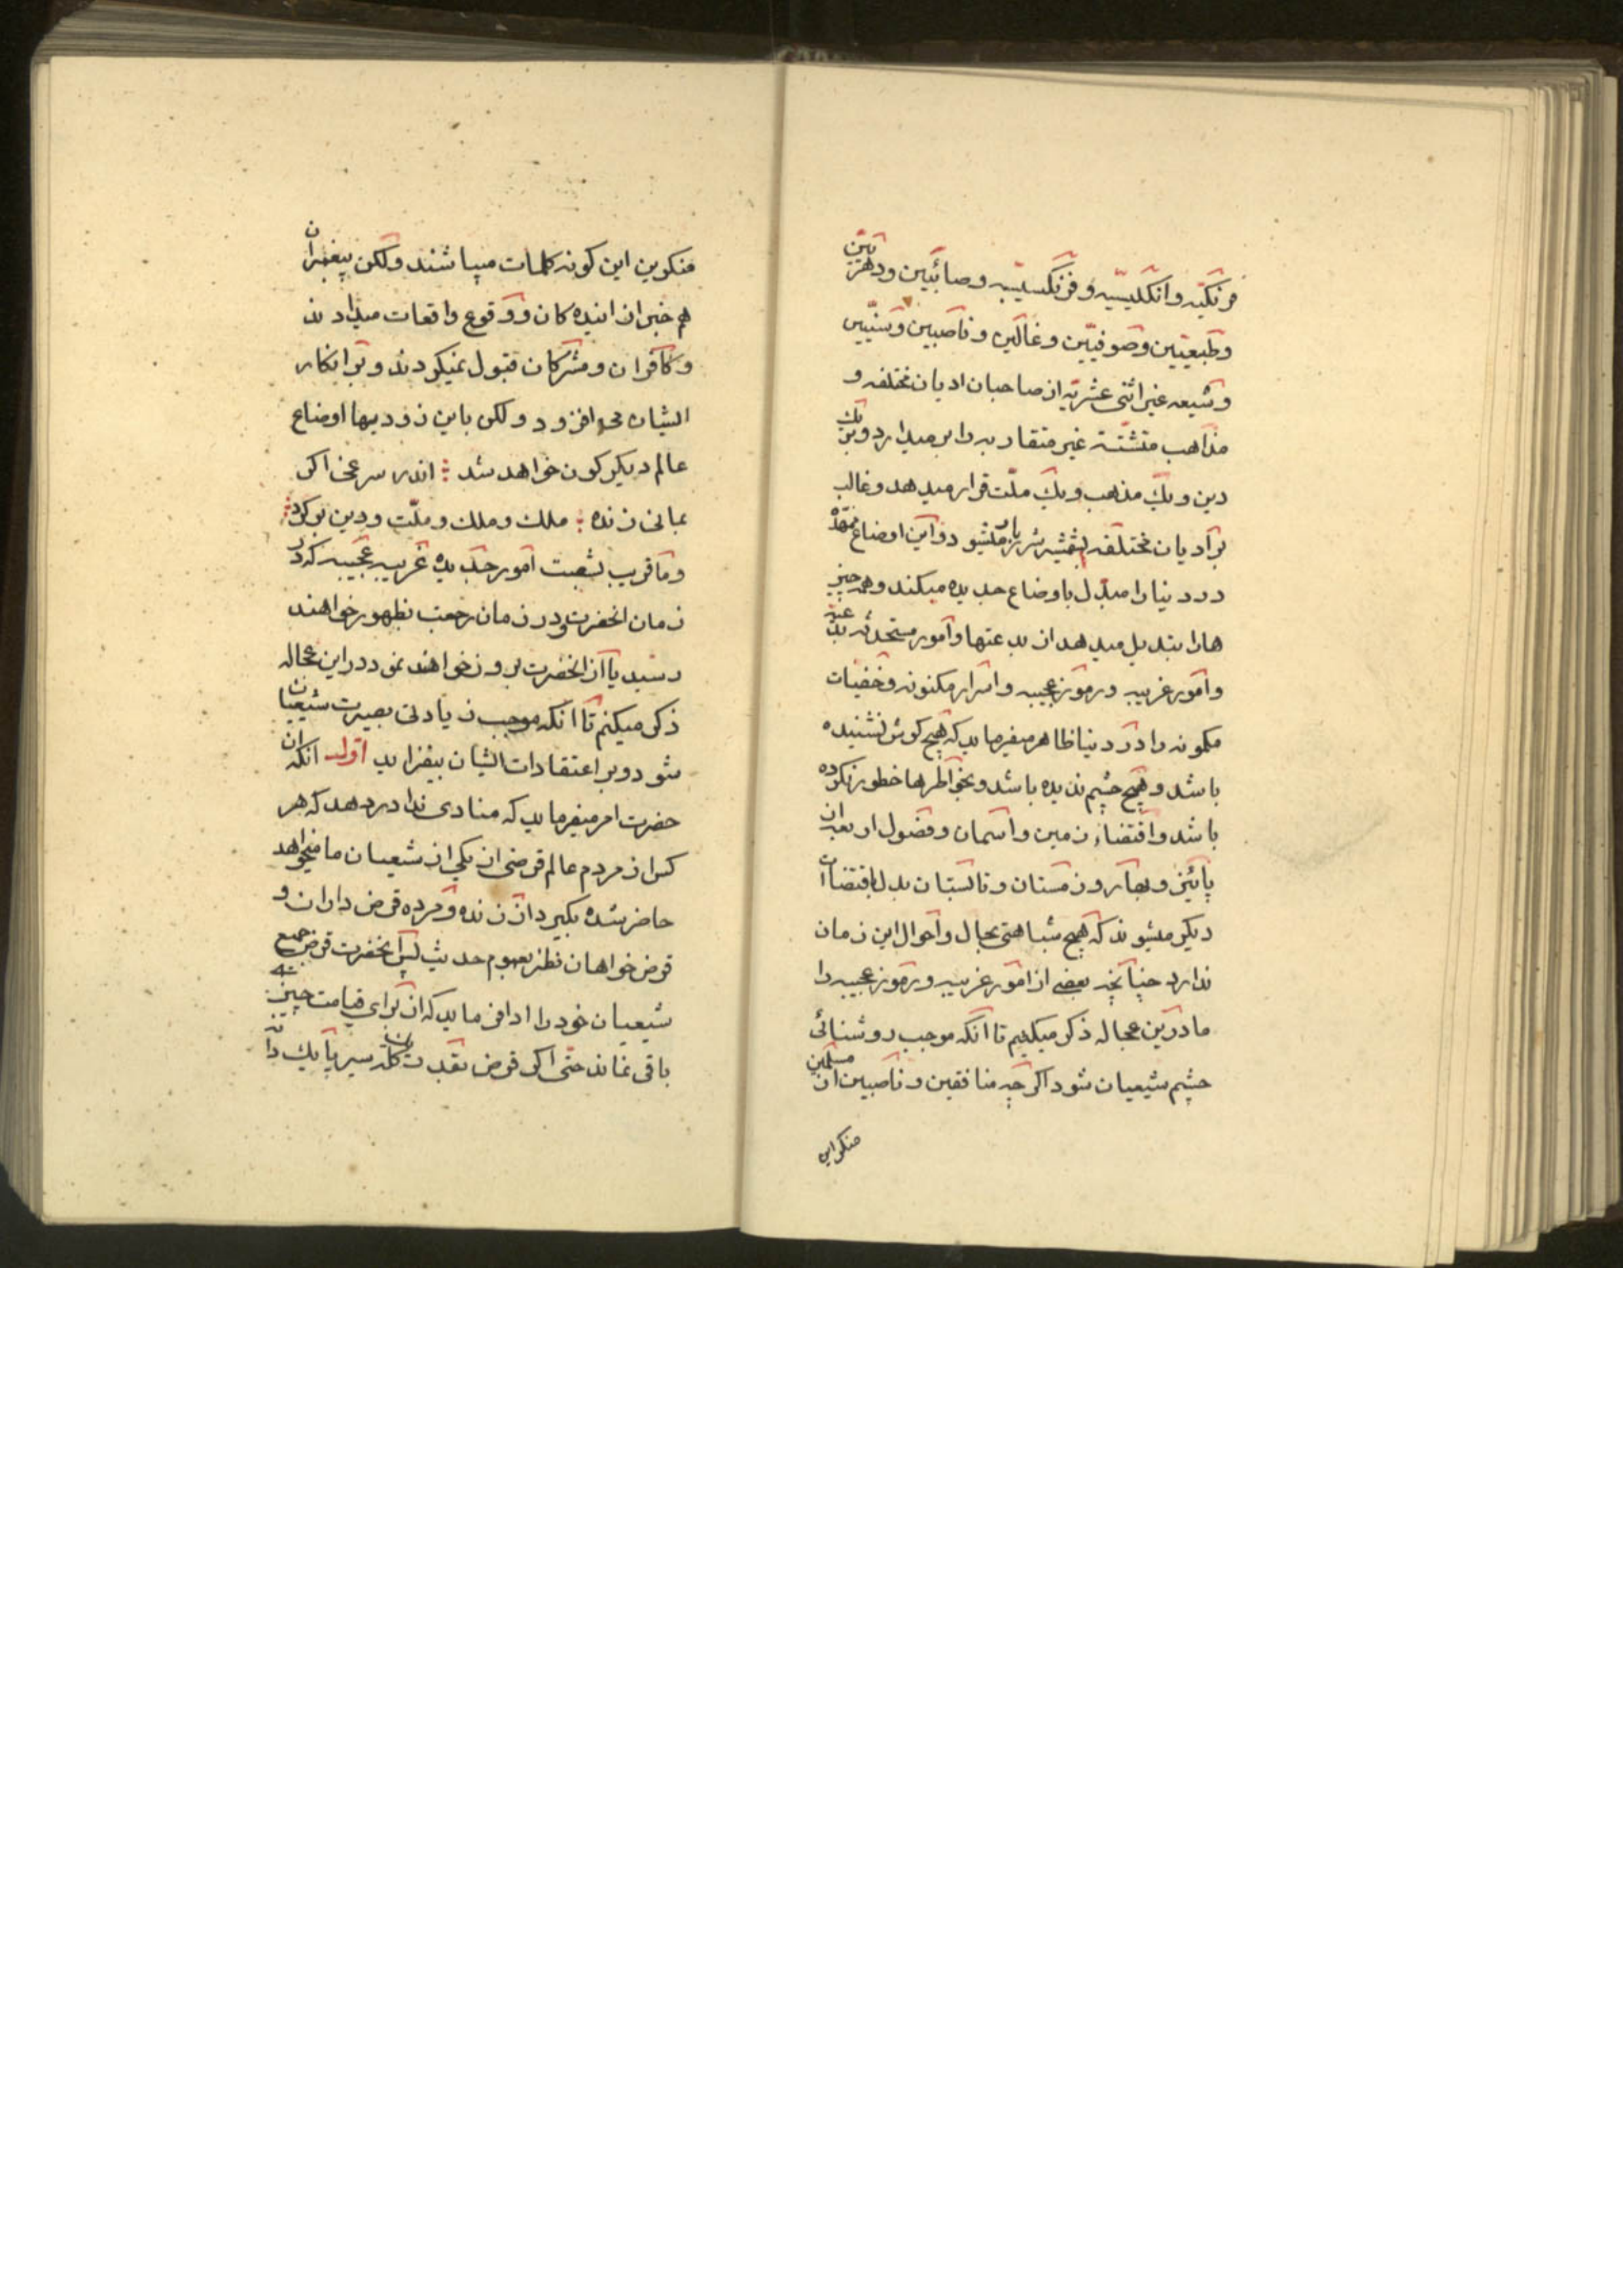 فرنگیّه و انگلیسیّه و فرنگسیسیّه و صائبیین و دهریّین
و طبیعیّین و صوفیّین و غالین و ناصبیین و سنّیین
و شیعه غیر اثنی عشریّه از صاحبان ادیان مختلفه و
مذاهب متشتّته غیر متقاربه را بر میدارد و بر یک
دین و یک مذهب و یک ملّت قرار میدهد و غالب
بر ادیان مختلفه بشمشیر شرربار میشود و این اوضاع
در دنیا را مبدّل باوضاع جدیده میکند و همه چیز
هارا تبدیل میدهد از بدعتها و امور مستحدثه
و امور غریبه و رموز عجیبه و اسرار مکنونه و خفیّات
مکمونه را در دنیا ظاهر میفرماید که هیچ کوش نشنیده
باشد و هیچ چشم ندیده باشد و بخواطرها خطور نکرده
باشد و اقتضاء زمین و آسمان و فصول اربعه از
پائیز و بهار و زمستان و تابستان بدل باقتضاات
دیکر میشوند که هیچ شباهتی بحال و احوال این زمان
ندارد چنانچه بعضی از امور غریبه و رموز عجیبه را
ما درین عجاله ذکر میکنیم تا آنکه موجب روشنائی
چشم شیعیان شود اگر چه منافقین و ناصبیین از مسلمین
منکر این
منکرین این کونه کلمات میباشند ولکن پیغمبران
هم خبر از اینده کان و وقوع واقعات میدادند
و کافران و مشرکان قبول نمیکردند و بر انکار
ایشان می افزود ولکن باین زودیها اوضاع
عالم دیکر کون خواهد شد اندر سر غی اکر
بمانی زنده ملک و ملک و ملّت و دین بر کردد
و ما قریب بشصت امور جدیده غریبه عجیبه که در
زمان انحضرت و در زمان رجعت بظهور خواهند
رسید یا از انحضرت بروز خواهند نمود در این عجاله
ذکر میکنم تا آنکه موجب زیادتی بصیرت شیعیان
شود و بر اعتقادات ایشان بیفزاید اوّل آنکه
حضرت امر میفرماید که منادی ندا در دهد که هر
کس از مردم عالم قرضی از یکی از شیعیان ما میخواهد
حاضر شده بکیرد از زنده و مرده قرض داران و
قرض خواهان نظر بعموم حدیث پس آنحضرت قرض جمیع
شیعیان خود را ادا فرماید که از برای قیامت چیزی
باقی نماند حتّی اکر قرض بقدر یک کله سیر یا یک دانه